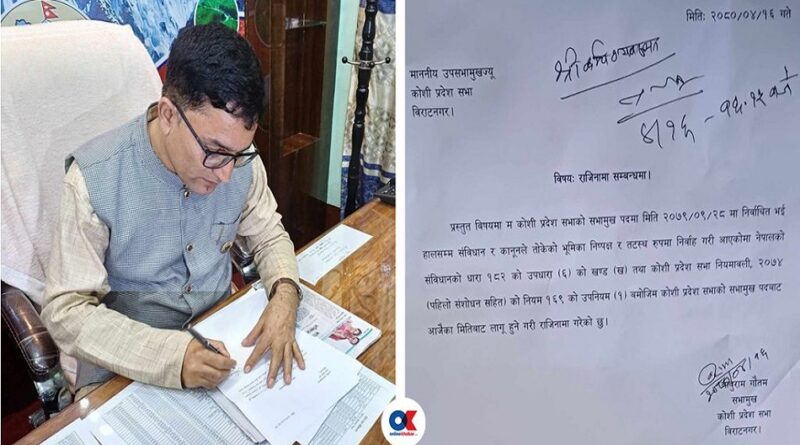 मिति: २०८०/०४/१६ गते
माननीय उपसभामुखज्यू
कोशी प्रदेश सभा
विराटनगर।
श्री
४।१६
विषय: राजिनामा सम्बन्धमा।
प्रस्तुत विषयमा म कोशी प्रदेश सभाको सभामुख पदमा मिति २०७९/०९/२८ मा निर्वाचित भई
हालसम्म संविधान र कानूनले तोकेको भूमिका निष्पक्ष र तटस्थ रुपमा निर्वाह गरी आएकोमा नेपालको
संविधानको धारा १८२ को उपधारा (६) को खण्ड (ख) तथा कोशी प्रदेश सभा नियमावली, २०७४
(पहिलो संशोधन सहित) को नियम १६९ को उपनियम (१) बमोजिम कोशी प्रदेश सभाको सभामुख पदबाट
आजैका मितिबाट लागू हुने गरी राजिनामा गरेको छु।
राम गौतम
सभामुख
कोशी प्रदेश सभा
विराटनगर।
OK
onlinekhabar.com